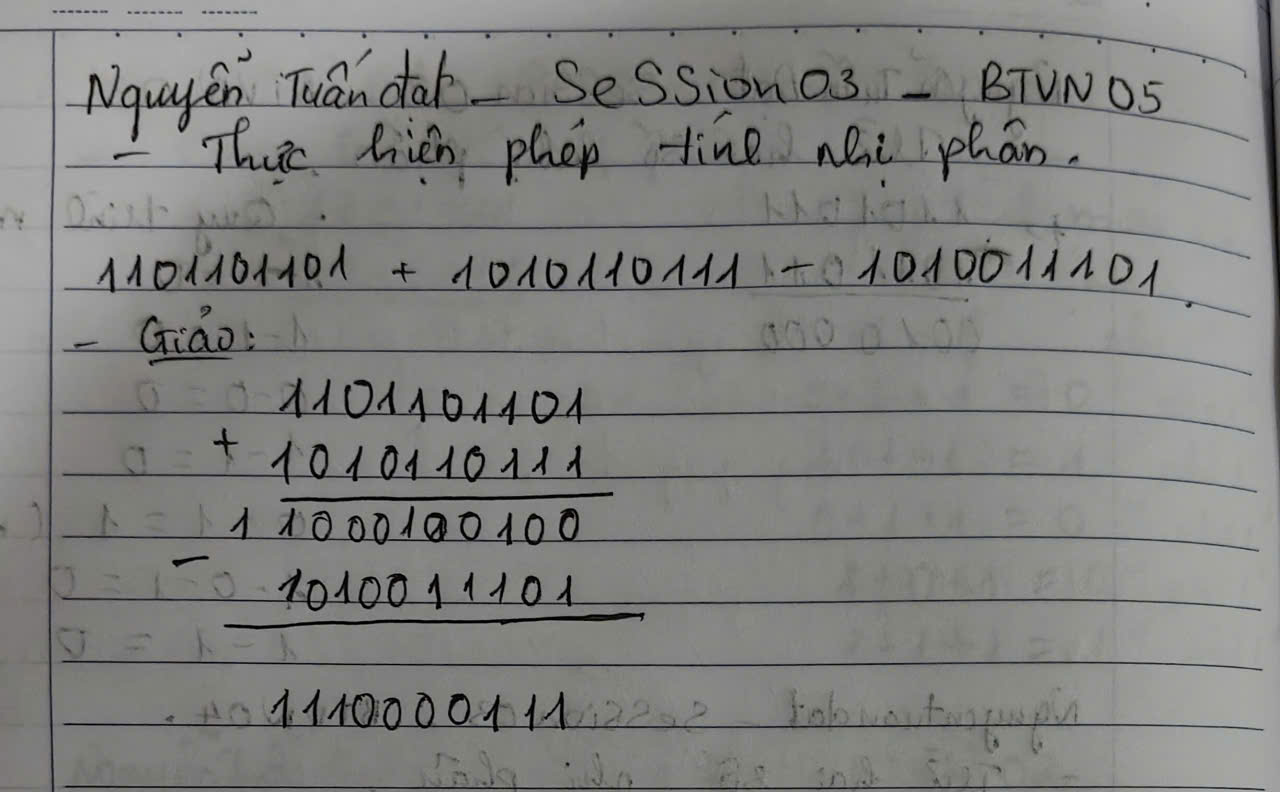 Nguyễn Tuấn đạt - SeSSion 03 - BTVN 05
- Thực hiện phép tính nhị phân.
1101101101 + 1010110111 - 1010011101.
- Giảo:
1101101101
+ 1010110111
1 1000100100
- 1010011101
1110000111